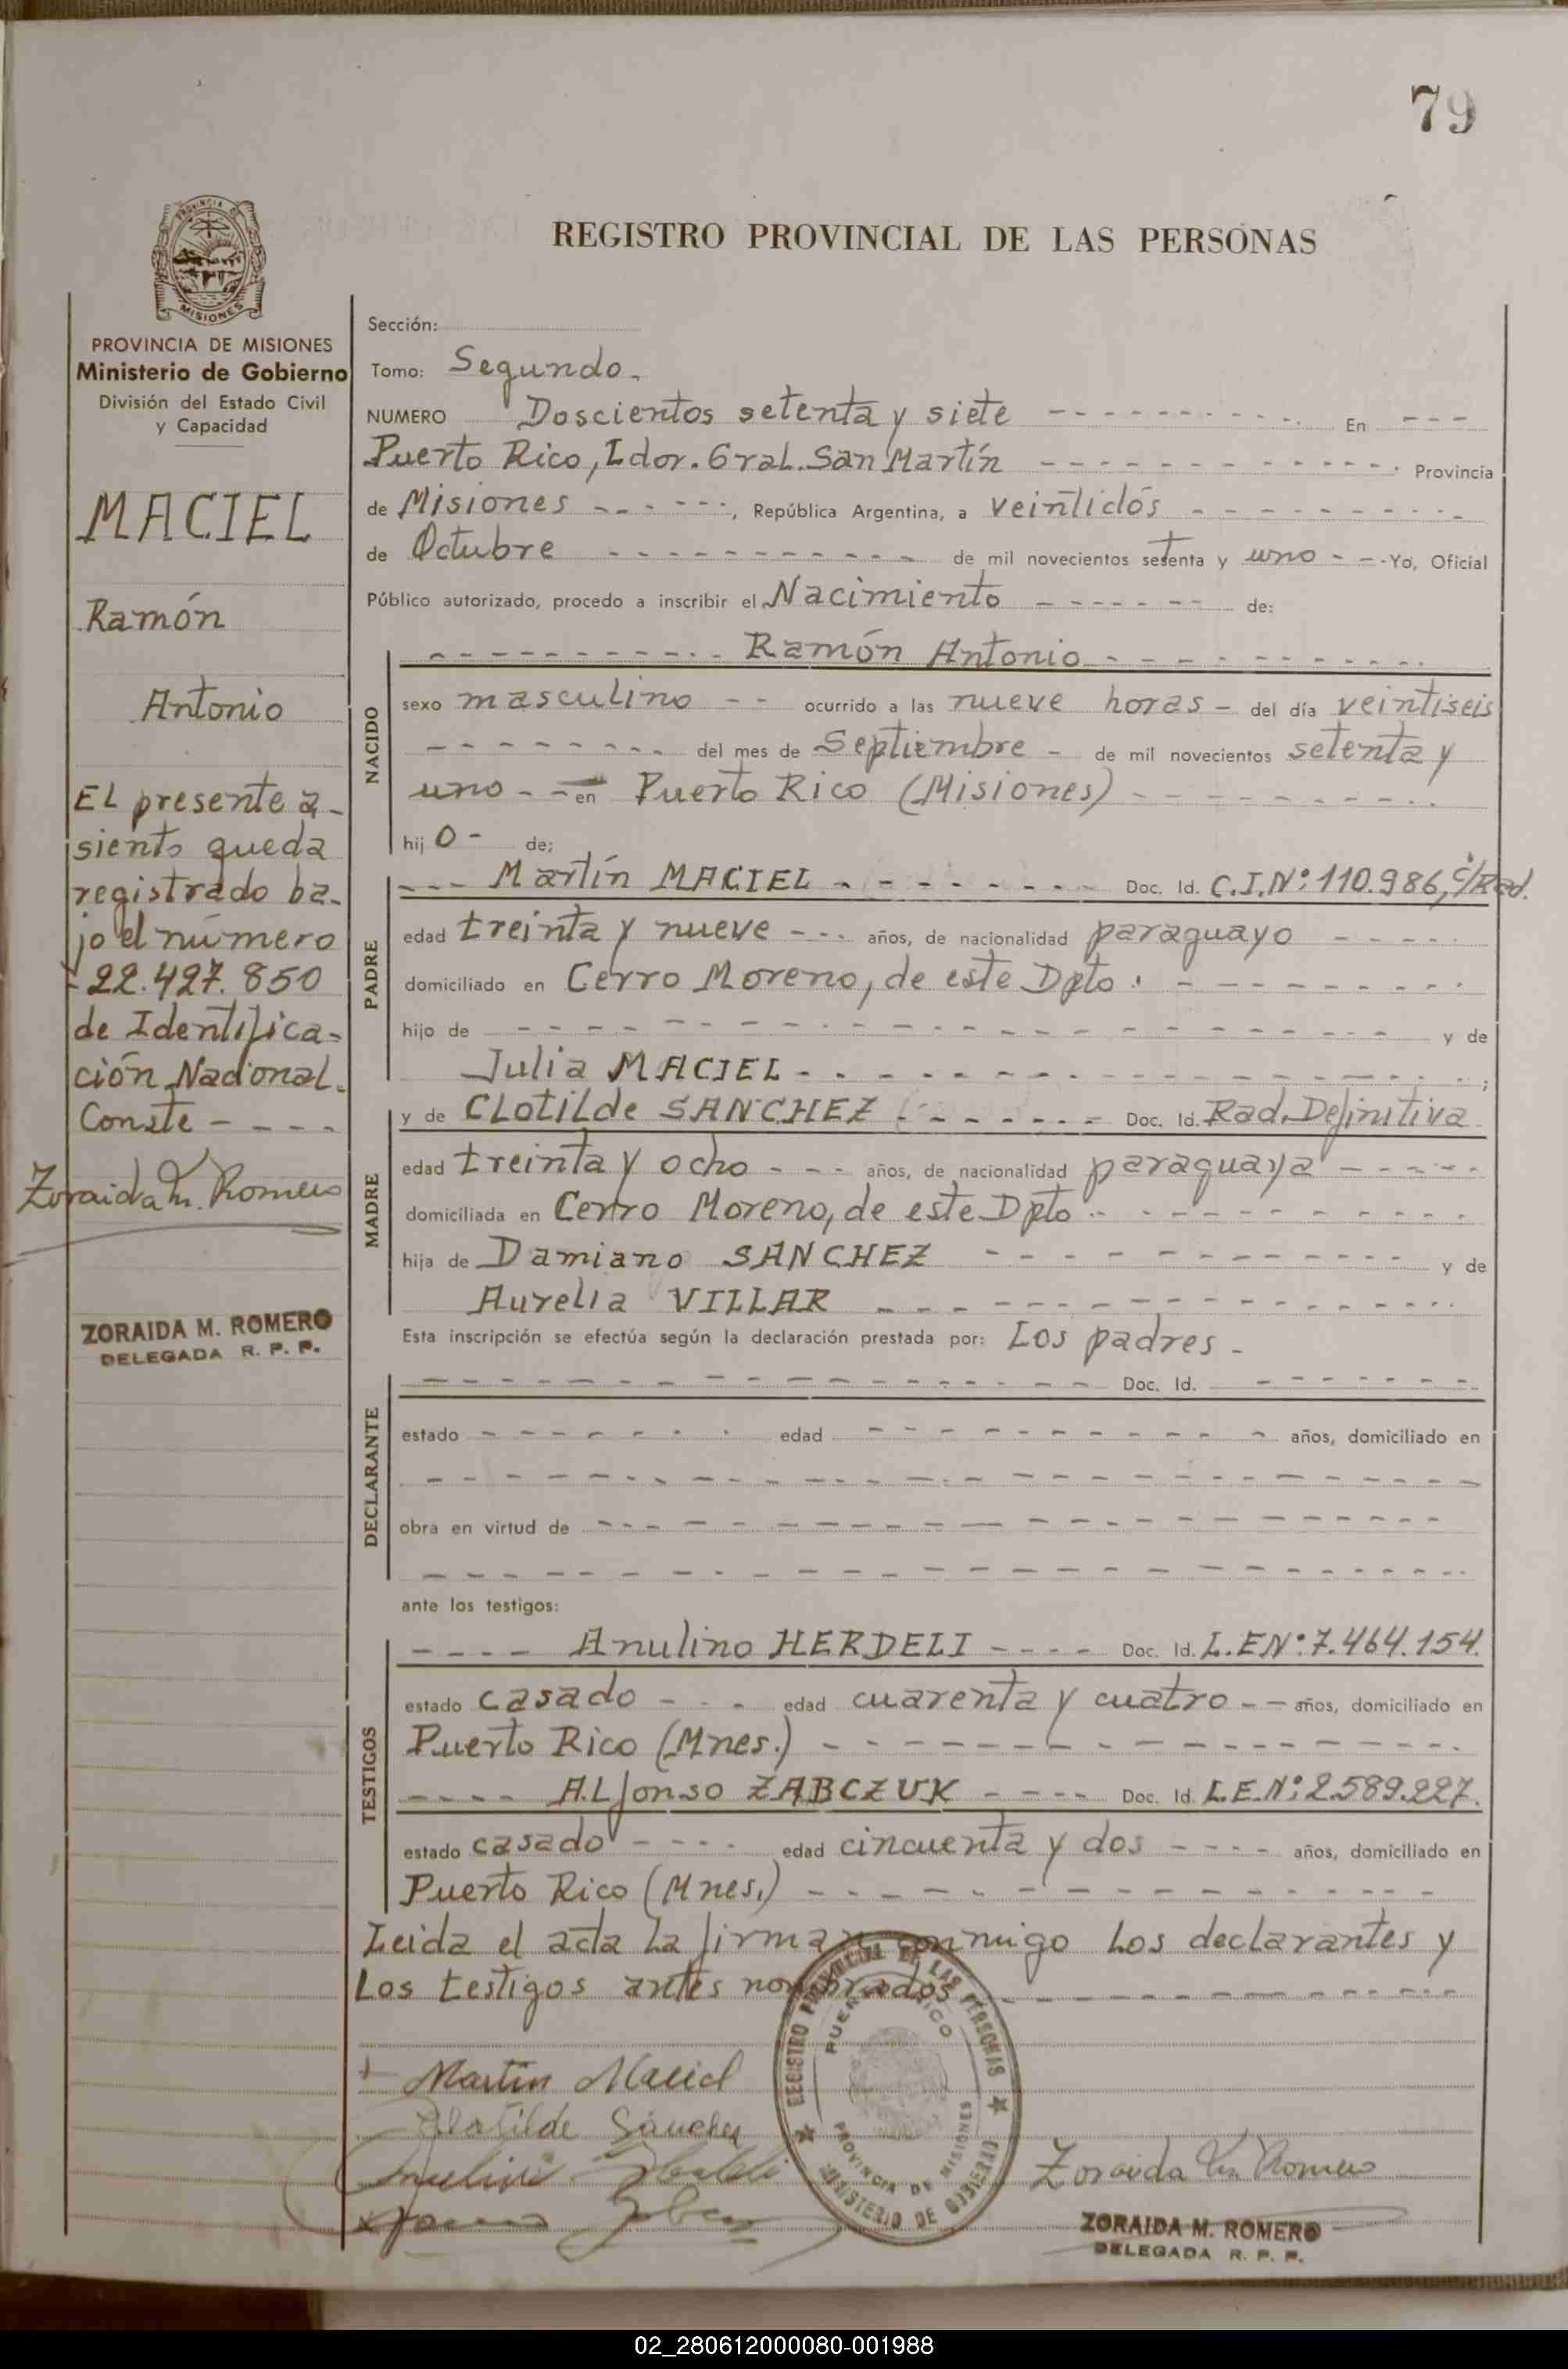 79
REGISTRO PROVINCIAL DE LAS PERSONAS
PROVINCIA DE MISIONES
Ministerio de Gobierno
División del Estado Civil
y Capacidad
MACIEL
Ramón
Antonio
EL presente a-
siento queda
registrado ba-
jo el número
22.427.850
de Identifica-
ción Nacional.
Conste - - - -
Zoraida M. Romero
ZORAIDA M. ROMERO
DELEGADA R. P. P.
Sección:
Tomo: Segundo.
NUMERO Doscientos setenta y siete - - - En - - -
Puerto Rico, Ldor. Gral. San Martín - - - Provincia
de Misiones - - -, República Argentina, a veintidós - - -
de Octubre - - - de mil novecientos setenta y uno - - Yo, Oficial
Público autorizado, procedo a inscribir el Nacimiento - - - de:
- - - Ramón Antonio - - -
NACIDO
sexo masculino - - ocurrido a las nueve horas - del día veintiseis
- - - del mes de Septiembre - de mil novecientos setenta y
uno - - en Puerto Rico (Misiones) - - -
hij o - de:
PADRE
- - - Martín MACIEL - - - Doc. Id. C.I.Nº: 110.986, c/Rad.
edad treinta y nueve - - - años, de nacionalidad paraguayo - - -
domiciliado en Cerro Moreno, de este Dpto. - - -
hijo de - - - y de
Julia MACIEL - - - ;
MADRE
y de CLotilde SANCHEZ - - - Doc. Id. Rad. Definitiva
edad treinta y ocho - - - años, de nacionalidad paraguaya - - -
domiciliada en Cerro Moreno, de este Dpto - - -
hija de Damiano SANCHEZ - - - y de
Aurelia VILLAR - - -
Esta inscripción se efectúa según la declaración prestada por: Los padres -
DECLARANTE
- - - Doc. Id. - - -
estado - - - edad - - - años, domiciliado en
- - -
obra en virtud de - - -
- - -
ante los testigos:
TESTIGOS
- - - - Anulino HERDELI - - - - Doc. Id. L.E.Nº: 7.464.154.
estado casado - - - edad cuarenta y cuatro - - años, domiciliado en
Puerto Rico (Mnes.) - - -
- - - - ALfonso ZABCZUK - - - - Doc. Id. L.E.Nº: 2.589.227.
estado casado - - - - edad cincuenta y dos - - - - años, domiciliado en
Puerto Rico (Mnes.) - - -
Leida el acta la firman conmigo los declarantes y
Los testigos antes nombrados - - -
Martin Maciel
Clotilde Sánchez
REGISTRO PROVINCIAL DE LAS PERSONAS
PUERTO RICO
PROVINCIA DE MISIONES
MINISTERIO DE GOBIERNO
Zoraida M. Romero
ZORAIDA M. ROMERO
DELEGADA R. P. P.
02_280612000080-001988